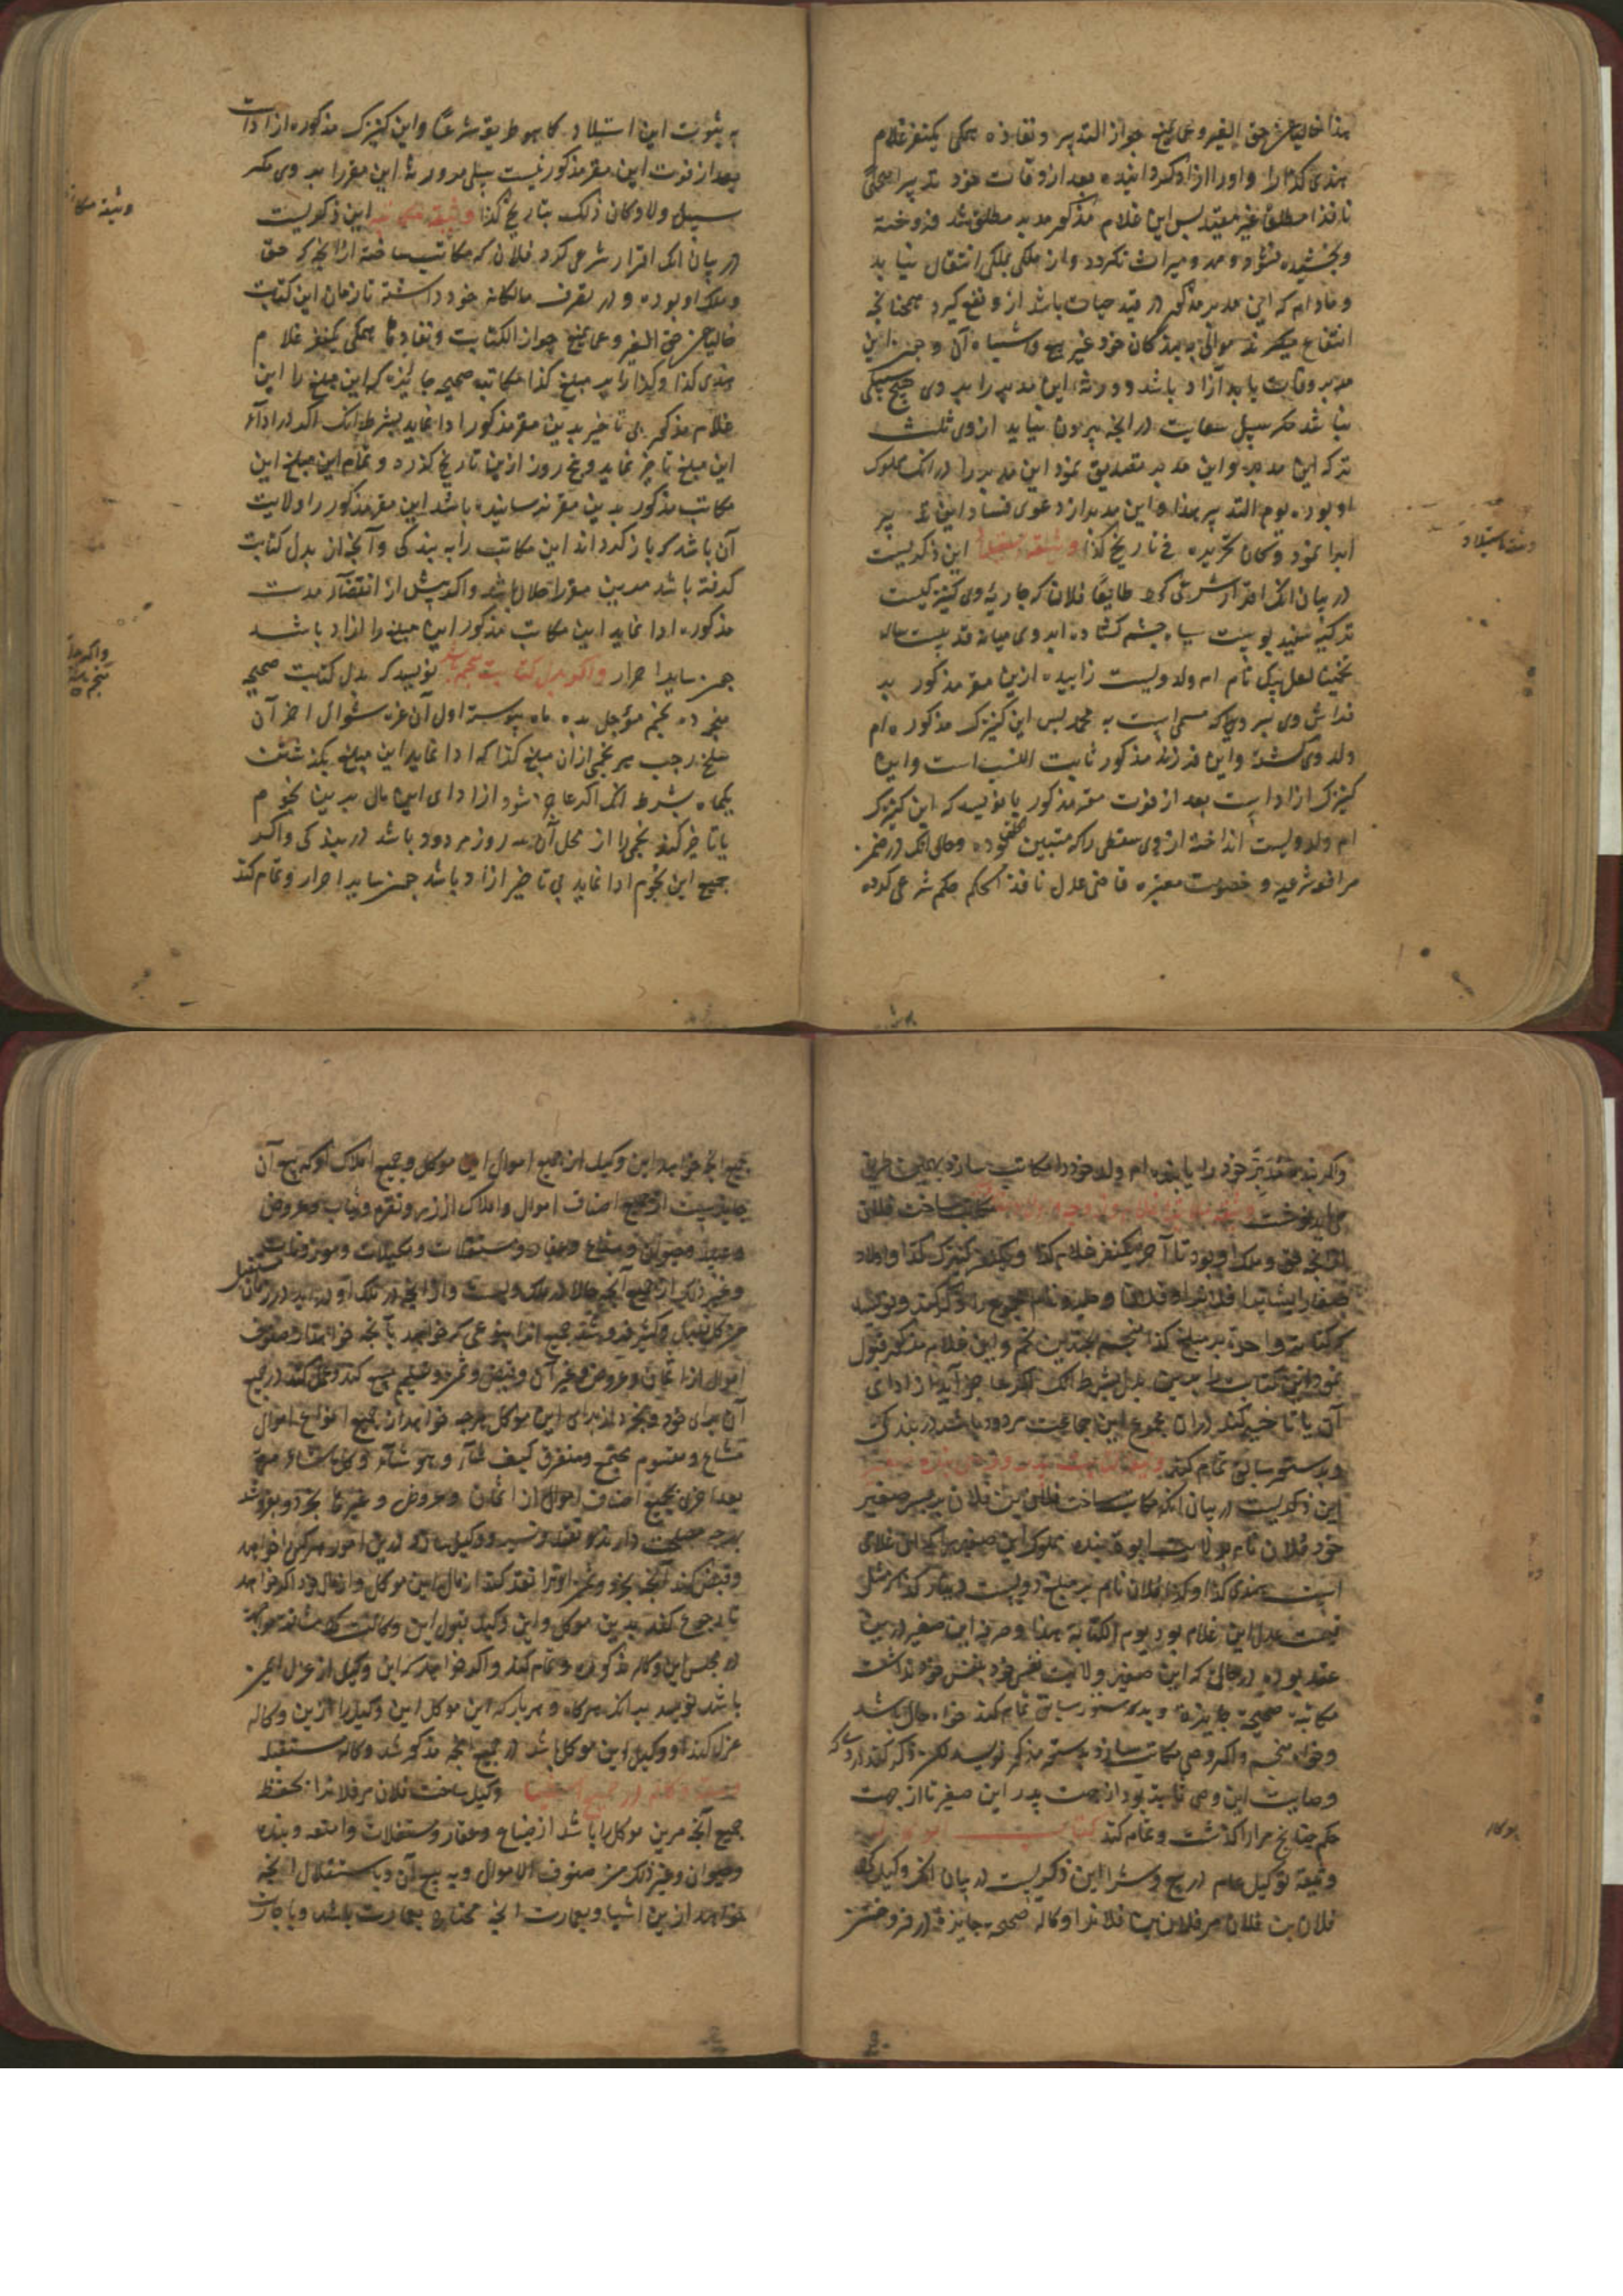 هذا خالیا عن حق الغیر و عما یمنع جواز التدبیر و نفاذه همکی یکنفر غلام
هندی کذا را و اورا ازاد کردانیده بعد از وفات خود تدبیرا صحیحا
نافذا مطلقا غیر مقید بس این غلام مذکور مدبر مطلق شد فروخته
و بخشیده نشود و مهر و میراث نکردد و از ملکی بملکی انتقال نیابد
و مادام که این مدبر مذکور در قید حیات باشد از و نفع کیرد همچنانچه
انتفاع میکیرند موالی به بندکان خود غیر بیع و اشباه آن و چون این
مدبر وفات یابد آزاد باشد و ورثه این مدبر را بر وی هیچ سبیلی
نباشد مکر سبیل سعایت در انچه بیرون نیاید از وی ثلث
ترکه این مدبر و این مدبر تصدیق نمود این مدبر را در آنک مملوک
او بوده یوم التدبیر هذا و این مدبر از دعوی فساد این تدبیر
ابرا نمود و کان تحریره فی تاریخ کذا وثیقه استیلاد این ذکریست
در بیان آنک اقرار شرعی کرد طایعا فلان که جاریه وی کنیزکیست
ترکیه سفید پوست سیاه چشم کشاده ابروی میانه قد بیست ساله
تخمینا لعل بیک نام ام ولد ویست زاییده ازین مقر مذکور بر
فراش وی پسر دیرا که مسمی است به محمد بس این کنیزک مذکوره ام
ولد وی کشته و این فرزند مذکور ثابت النسب است و این
کنیزک ازاد است بعد از فوت مقر مذکور یا نویسد که این کنیزک
ام ولد ویست انداخته از وی سقطی را که متبین خلقه بوده و حال آنک در ضمن
مرافعه شرعیه و خصومت معتبره قاضی عدل نافذ الحکم حکم شرعی کرده
وثیقه استیلاد
به ثبوت این استیلاد کما هو طریقه شرعا و این کنیزک مذکوره ازاد است
بعد از فوت این مقر مذکور نیست سبیلی مر ورثه این مقر را بر وی مکر
سبیل ولا و کان ذلک بتاریخ کذا وثیقه مکاتبه این ذکریست
در بیان آنک اقرار شرعی کرد فلان که مکاتب ساخته از آنچه که حق
و ملک او بوده و در تصرف مالکانه خود داشته تا زمان این کتابت
خالیا عن حق الغیر و عما یمنع جواز الکتابت و نفاذها همکی یکنفر غلام
هندی کذا و کذا را بر مبلغ کذا مکاتبه صحیحه جایزه که این مبلغ را این
غلام مذکور بی تاخیر بدین مقر مذکور ادا نماید بشرط آنک اکر در اداء
این مبلغ تاخیر نماید و پنج روز ازین تاریخ کذرد و تمام این مبلغ این
مکاتب مذکور بدین مقر نرسانیده باشد این مقر مذکور را ولایت
آن باشد که باز کرداند این مکاتب را به بندکی و آنچه از بدل کتابت
کرفته باشد مر بدین مقر را حلال باشد و اکر پیش از انقضاء مدت
مذکوره ادا نماید این مکاتب مذکور این مبلغ را ازاد باشد
چون سایر احرار و اکر بدل کتابت منجم باشد نویسد که بدل کتابت صحیحه
منجم ده نجم مؤجل بده ماه پیوسته اول آن غره شوال اخر آن
سلخ رجب هر نجمی ازان مبلغ کذا که ادا نماید این مبلغ بکذشتن
یکماه بشرط آنک اکر عاجز شود از ادای این مال بدین نجوم
یا تاخیر کند نجمی را از محل آن سه روز مردود باشد در بندکی و اکر
جمیع این نجوم ادا نماید بی تاخیر ازاد باشد چون سایر احرار و تمام کند
وثیقه مکاتبه
و اکر بدل
منجم باشد
و اکر بنده مدبر خود را یا بنده ام ولد خود را مکاتب سازد بهمین طریق
می باید نوشت وثیقه مکاتبه غلام و زوجه و اولاد مکاتب ساخت فلان
از آنچه حق و ملک او بود تا آخر یکنفر غلام کذا و یکنفر کنیزک کذا و اولاد
صغار ایشانرا فلانرا و فلانرا و حلیه و نام مجموع را ذکر کند و نویسد
که کتابت واحده بر مبلغ کذا منجم بچندین نجم و این غلام مذکور قبول
نمود این کتابت را بدین بدل بشرط آنک اکر عاجز آید از ادای
آن یا تاخیر کند دران مجموع این جماعت مردود باشد در بندکی
و بدستور سابق تمام کند
این ذکریست در بیان آنکه مکاتب ساخت فلان بن فلان بر پسر صغیر
خود فلان نام بولایت ابوت بنده مملوک این صغیر را که این غلامی
است هندی کذا و کذا فلان نام بر مبلغ دویست دینار کذا که مثل
قیمت عدل این غلام بود یوم الکتابة هذا و صرفه این صغیر درین
عقد بود در حالی که این صغیر ولایت نفس خود بنفس خود نداشت
مکاتبة صحیحة جایزة و بدستور سابق تمام کند خواه حال باشد
و خواه منجم و اکر وصی مکاتب سازد بدستور مذکور نویسد لکن ذکر کند در وی که
وصایت این وصی ثابته بود از جهت پدر این صغیر یا از جهت
حکم چنانچه مرارا کذشت و تمام کند کتاب الوکاله
وثیقه توکیل عام در بیع و شرا این ذکریست در بیان آنک وکیل کرد
فلان بن فلان مر فلان بن فلانرا وکالة صحیحه جایزة در فروختن
الوکاله
جمیع آنچه خواهد این وکیل از جمیع اموال این موکل و جمیع املاک او که بیع آن
جایز است از جمیع اصناف اموال و املاک از زر و نقره و ثیاب و عروض
و عبید و حیوان و ضیاع و عقار و مستغلات و مکیلات و موزونات
و غیر ذلک از جمیع آنچه حالا در ملک ویست و از آنچه در ملک او در آید در زمان مستقبل
من کل قلیل و کثیر فروشد جمیع آنرا بنوعی که خواهد بآنچه خواهد از صنوف
اموال از اثمان و عروض و غیر آن و قبض ثمن و تسلیم مبیع کند و عمل کند در جمیع
آن برای خود و بخرد از برای این موکل هرچه خواهد از جمیع انواع اموال
مشاع و مقسوم مجتمع و متفرق کیف شاء و هو شاء و کل ما شاء مرة
بعد اخری بجمیع اصناف اموال از اثمان و عروض و غیرها بخرد و بفروشد
بهرچه مصلحت داند نقد و نسیه و وکیل سازد درین امور هرکرا خواهد
و قبض کند آنچه بخرد و ثمن اورا نقد کند از مال این موکل و از مال خود اکر خواهد
تا رجوع کند بدین موکل و این وکیل قبول این وکالت کرد
در مجلس این وکاله مذکوره و تمام کند و اکر خواهد که این وکیل از عزل ایمن
باشد نویسد بر آنکه هرکاه و هر بار که این موکل این وکیل را ازین وکاله
عزل کند او وکیل این موکل باشد در جمیع آنچه مذکور شد وکاله مستقبله
وثیقه وکالت در جمیع اشیاء وکیل ساخت فلان مر فلانرا بحفظ
جمیع آنچه مرین موکل را باشد از ضیاع و عقار و مستغلات و امتعه و بنده
و حیوان و غیر ذلک من صنوف الاموال و به بیع آن و باستغلال آنچه
خواهد ازین اشیا و بعمارت آنچه محتاج بعمارت باشد و باجاره